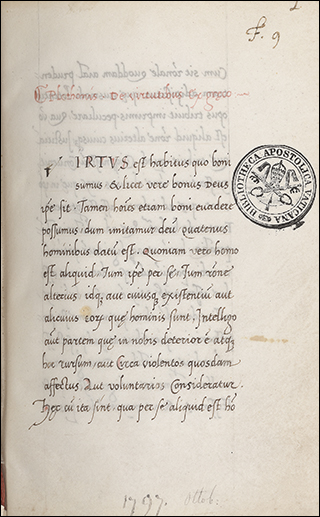 F. 9
De virtutibus Ex græco
IRTVS est habitus quo boni
sumus & licet vere bonus Deus
ipe sit. Tamen hoies etiam boni evadere
possumus, dum imitamur deu, quatenus
hominibus datu est. Quoniam vero homo
est aliquid. Tum ipe per se, Tum rone
alterius idq, aut cuiusq, existentiu aut
alicuius eorx que hominis sunt. Intelligo
aut partem que in nobis deterior e atq,
hoc rursum, aut Circa violentos quosdam
affectus. Aut voluntarios Consideratur.
Hec cu ita sint, qua per se aliquid est ho
BIBLIOTHECA APOSTOLICA VATICANA
1797. Ottob.